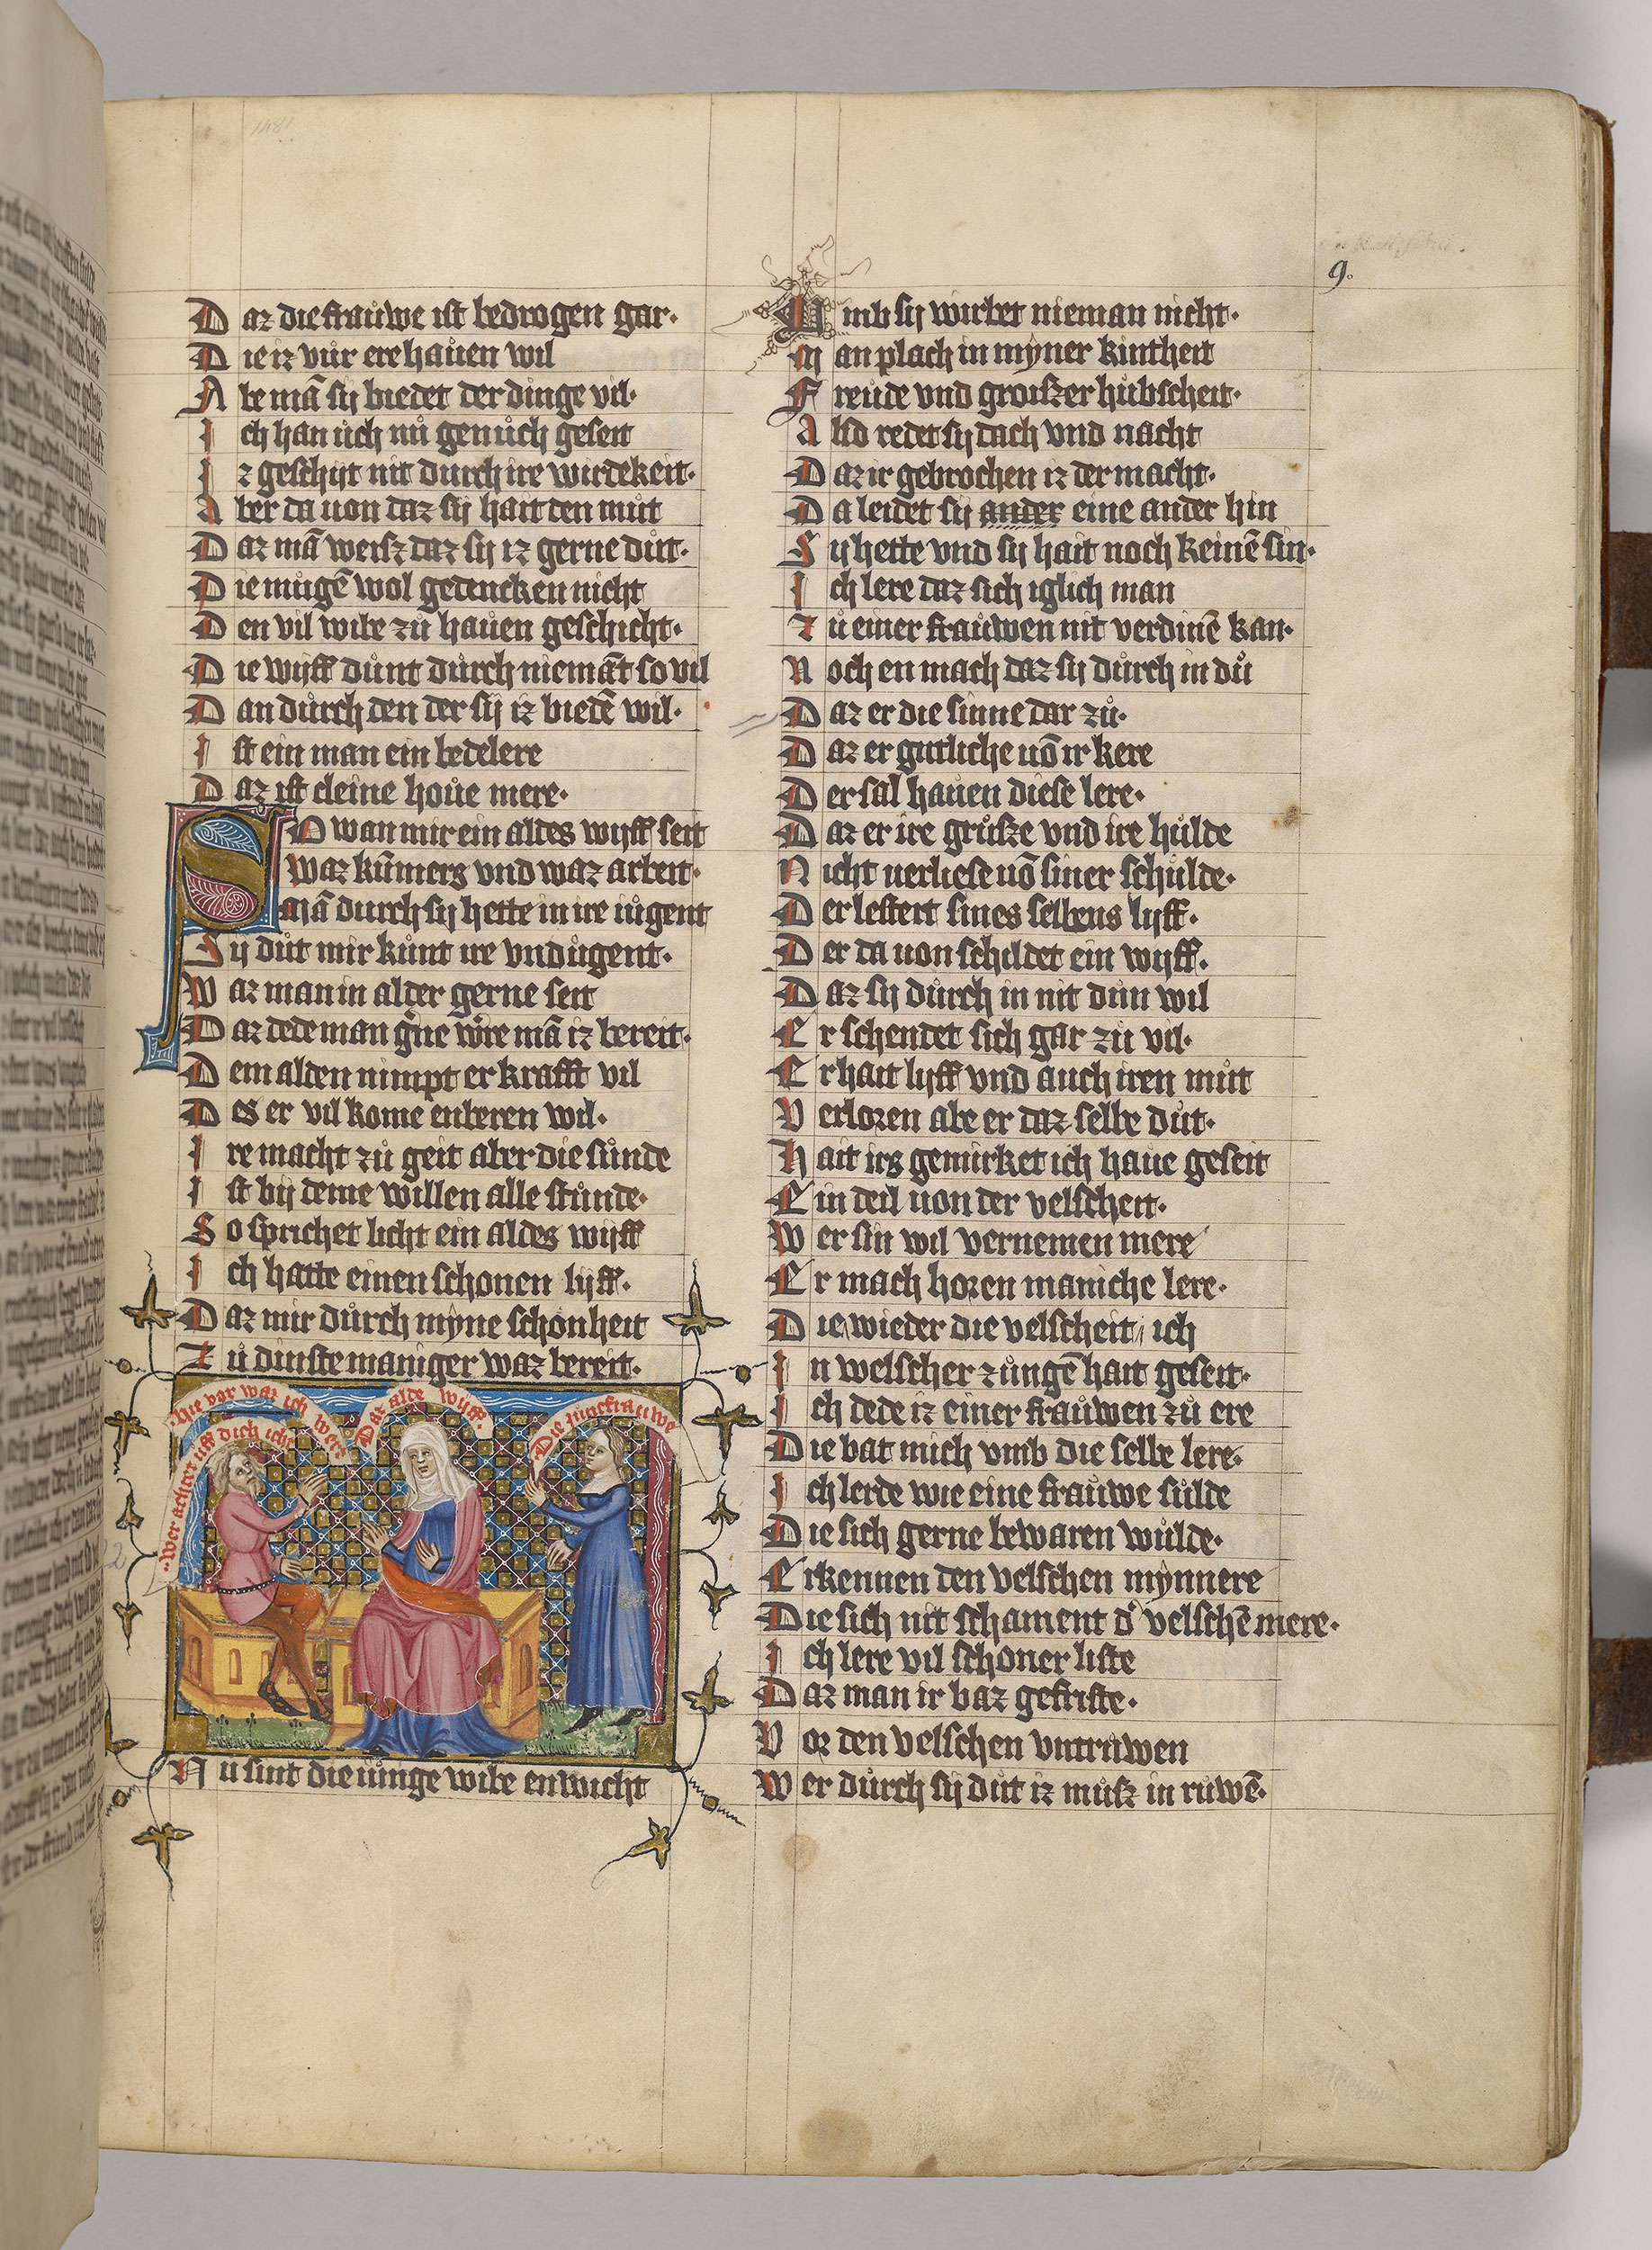 9.
Daz die frauwe ist bedrogen gar·
Die iz vůr ere hauen wil
Abe mā sij biedet der dinge vil·
Ich han ůch nů genůch geseit
Iz geschijt nit durch ire wirdekeit·
Aber da uon daz sij hait den můt
Daz mā weisz daz sij iz gerne důt·
Die můgē wol gedencken nicht
Den vil wibe zů hauen geschicht·
Die wijff důnt důrch niemāt so vil
Dan důrch den der sij iz biedē wil·
Ist ein man ein bedelere
Daz ist cleine houe mere·
Swan mir ein aldes wijff seit
Waz kūmers vnd waz arbeit·
Mā durch sij hette in ire iůgent
Sij důt mir kůnt ire vndůgent·
Waz man in alder gerne seit
Daz dede man g̾ne w̾re mā iz bereit·
Dem alden nimpt er krafft vil
Des er vil kome enberen wil·
Ire macht zů geit aber die sůnde
Ist bij deme willen alle stůnde·
So sprichet licht ein aldes wijff
Ich hatte einen schonen lijff·
Daz mir důrch myne schonheit
Zů dinste maniger waz bereit·
hie vor waz ich wers
wer achtet uff dich icht
Daz alde wijff
Die juncfrauwe
Nu sint die iunge wibe enwicht
Vmb sij wirbet nieman nicht·
Man plach in myner kintheit
Freude vnd groiszer hůbscheit·
Also redet sij dach vnd nacht
Daz ir gebrochen iz der macht·
Da leidet sij ander eine ander hin
Sij hette vnd sij hait noch keinē sin·
Ich lere daz sich iglich man
Zů einer frauwen nit verdinē kan·
Noch en mach daz sij důrch in důi
Daz er die sinne dar zů·
Daz er gutliche uō ir kere
Der sal hauen diese lere·
Daz er ire grůsze vnd ire hůlde
Nicht uerliese uō siner schůlde·
Der lestert sines selbens lijff·
Der da uon schildet ein wijff·
Daz sij důrch in nit dun wil
Er schendet sich gar zů vil·
Er hait lijff vnd auch iren můt
Verlozen abe er daz selbe důt·
Hait irs gemirket ich haue geseit
Ein deil uon der velscheit·
Wer sin wil vernemen mere
Er mach hozen maniche lere·
Die wieder die velscheit ich
In welscher zůngē hait geseit·
Ich dede iz einer frauwen zů ere
Die bat mich vmb die selbe lere·
Ich lerde wie eine frauwe sůlde
Die sich gerne bewaren wůlde·
Erkennen den velschen mynnere
Die sich nit schament d̾ velschē mere·
Ich lere vil schoner liste
Daz man ir baz gefriste·
Voz den velschen vntruwen
Wer důrch sij důt iz můsz in růwē·